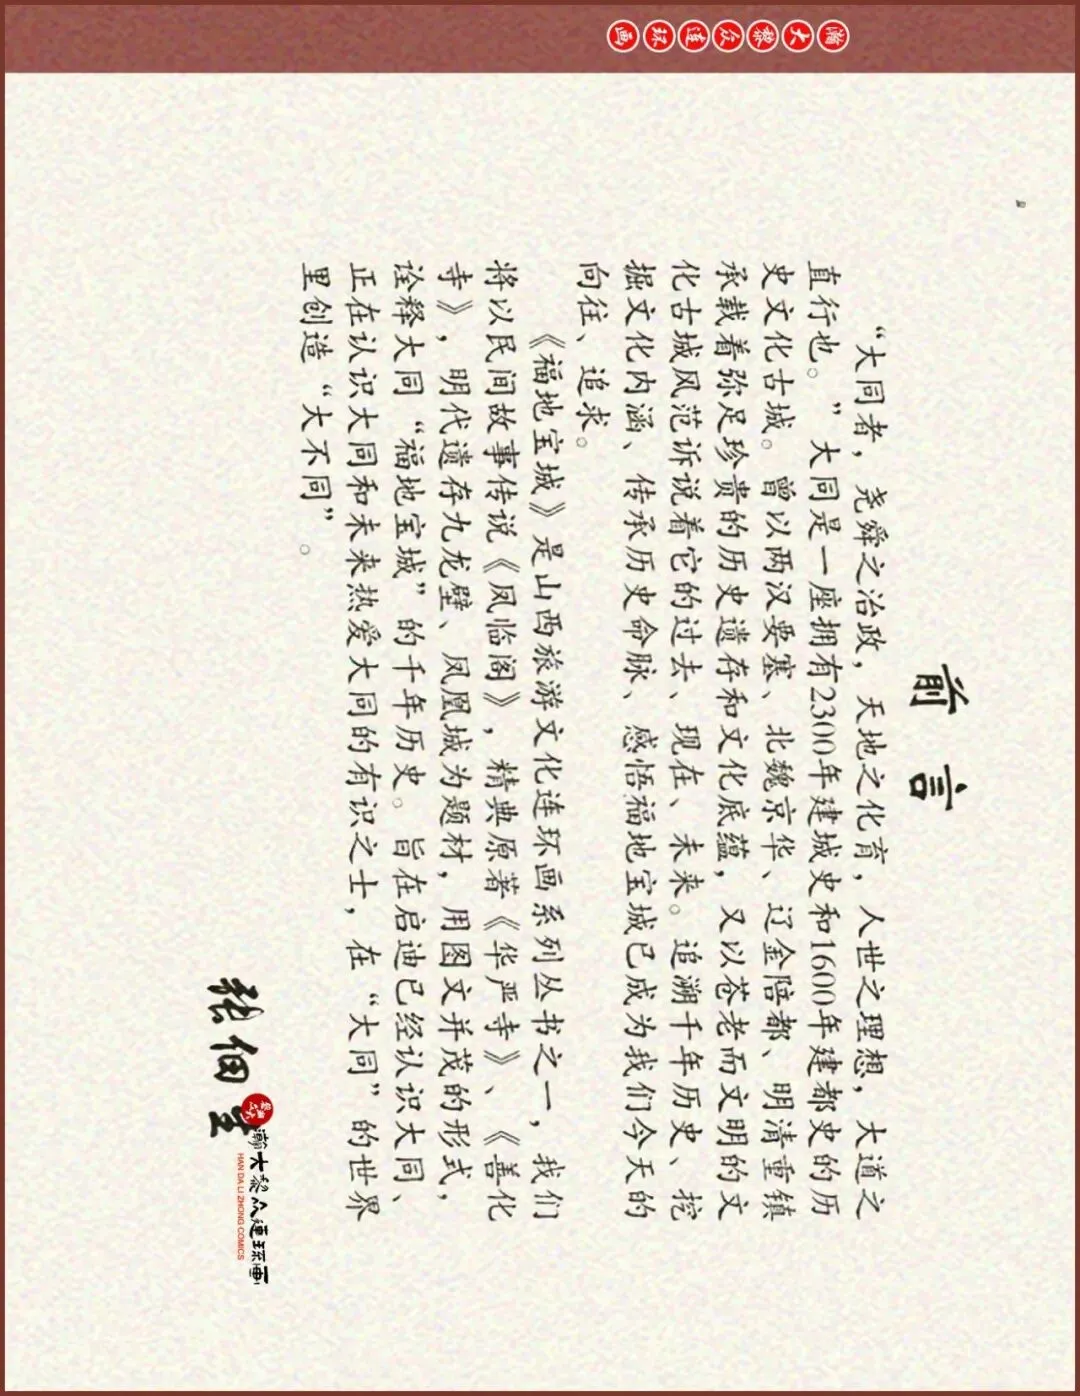 瀚大黎众连环画
前言
“大同者，尧舜之治政，天地之化育，人世之理想，大道之
直行也。”大同是一座拥有2300年建城史和1600年建都史的历
史文化古城。曾以两汉要塞、北魏京华、辽金陪都、明清重镇
承载着弥足珍贵的历史遗存和文化底蕴，又以苍老而文明的文
化古城风范诉说着它的过去、现在、未来。追溯千年历史、挖
掘文化内涵、传承历史命脉、感悟福地宝城已成为我们今天的
向往、追求。
《福地宝城》是山西旅游文化连环画系列丛书之一，我们
将以民间故事传说《凤临阁》，精典原著《华严寺》、《善化
寺》，明代遗存九龙壁、凤凰城为题材，用图文并茂的形式，
诠释大同“福地宝城”的千年历史。旨在启迪已经认识大同、
正在认识大同和未来热爱大同的有识之士，在“大同”的世界
里创造“大不同”。
瀚大黎众连环画
HAN DA LI ZHONG COMICS